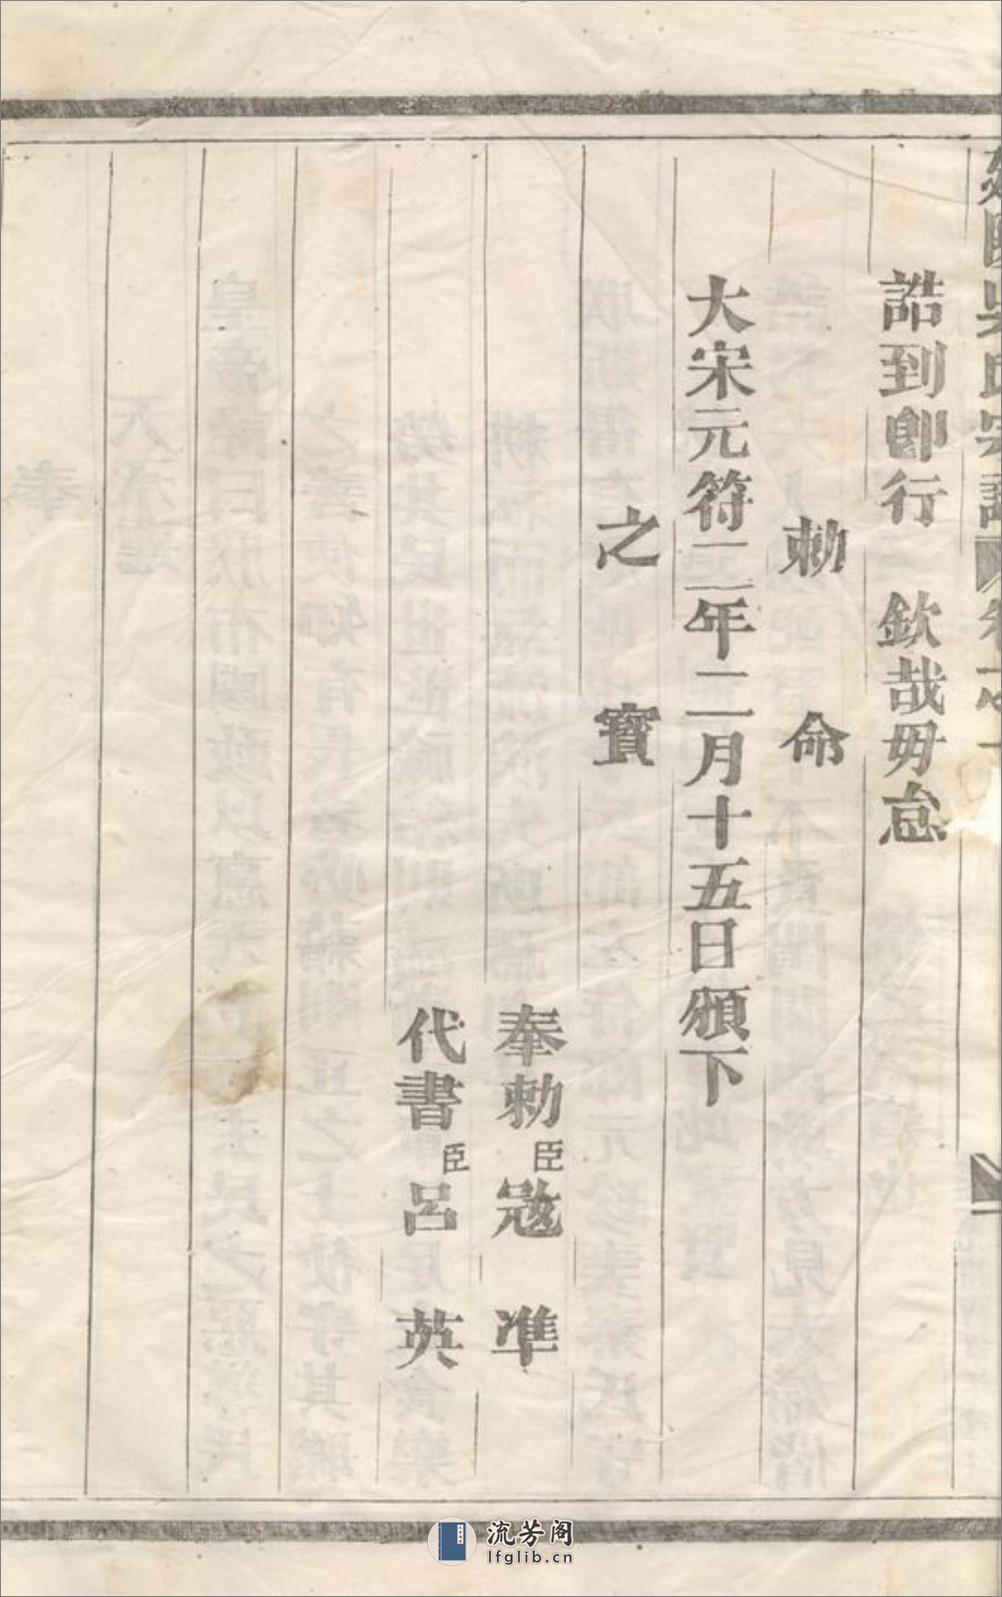 吳氏宗譜
誥到卽行　欽哉毋怠
勅　命
大宋元符二年二月十五日頒下
之　寳
奉勅臣寇　準
代書臣呂　英
流芳阁
lfglib.cn